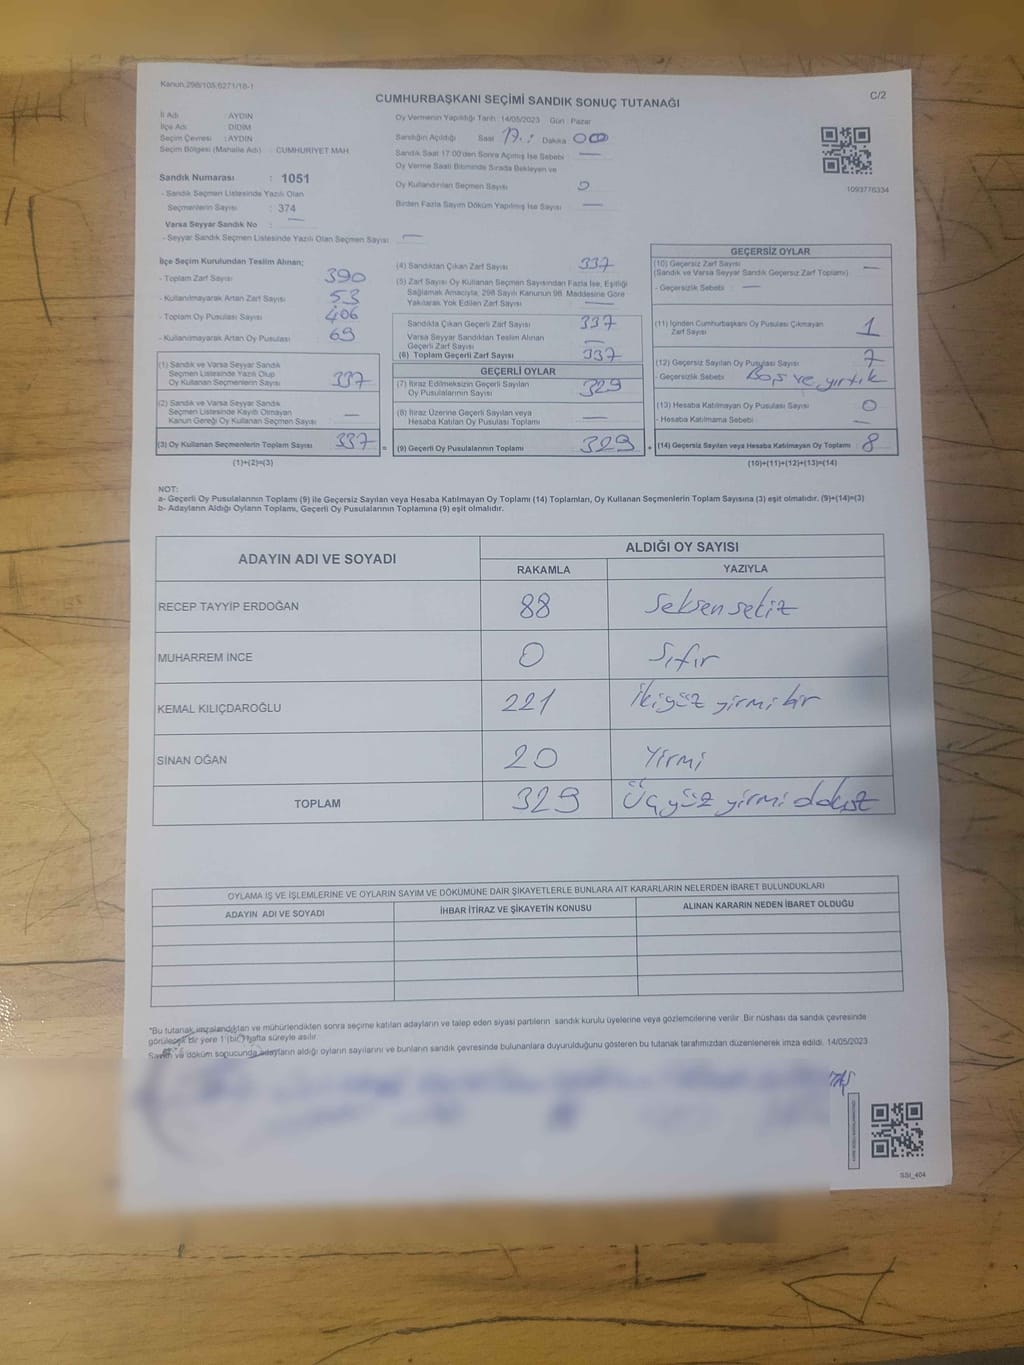 Kanun,298/105;6271/18-1
C/2
CUMHURBAŞKANI SEÇİMİ SANDIK SONUÇ TUTANAĞI
İl Adı : AYDIN
İlçe Adı : DİDİM
Seçim Çevresi : AYDIN
Seçim Bölgesi (Mahalle Adı) : CUMHURİYET MAH.
Sandık Numarası : 1051
- Sandık Seçmen Listesinde Yazılı Olan
Seçmenlerin Sayısı : 374
Varsa Seyyar Sandık No : —
- Seyyar Sandık Seçmen Listesinde Yazılı Olan Seçmen Sayısı —
Oy Vermenin Yapıldığı Tarih : 14/05/2023 Gün : Pazar
Sandığın Açıldığı Saat 17.: Dakika 00
Sandık Saat 17:00'den Sonra Açılmış İse Sebebi —
Oy Verme Saati Bitiminde Sırada Bekleyen ve
Oy Kullandırılan Seçmen Sayısı 0
Birden Fazla Sayım Döküm Yapılmış İse Sayısı —
1093776334
İlçe Seçim Kurulundan Teslim Alınan;
- Toplam Zarf Sayısı 390
- Kullanılmayarak Artan Zarf Sayısı 53
- Toplam Oy Pusulası Sayısı 406
- Kullanılmayarak Artan Oy Pusulası 69
(1) Sandık ve Varsa Seyyar Sandık
Seçmen Listesinde Yazılı Olup
Oy Kullanan Seçmenlerin Sayısı 337
(2) Sandık ve Varsa Seyyar Sandık
Seçmen Listesinde Kayıtlı Olmayan
Kanun Gereği Oy Kullanan Seçmen Sayısı —
(3) Oy Kullanan Seçmenlerin Toplam Sayısı 337 =
(1)+(2)=(3)
(4) Sandıktan Çıkan Zarf Sayısı 337
(5) Zarf Sayısı Oy Kullanan Seçmen Sayısından Fazla İse, Eşitliği
Sağlamak Amacıyla, 298 Sayılı Kanunun 98. Maddesine Göre
Yakılarak Yok Edilen Zarf Sayısı —
Sandıkta Çıkan Geçerli Zarf Sayısı 337
Varsa Seyyar Sandıktan Teslim Alınan
Geçerli Zarf Sayısı —
(6) Toplam Geçerli Zarf Sayısı 337
GEÇERLİ OYLAR
(7) İtiraz Edilmeksizin Geçerli Sayılan
Oy Pusulalarının Sayısı 329
(8) İtiraz Üzerine Geçerli Sayılan veya
Hesaba Katılan Oy Pusulası Toplamı —
(9) Geçerli Oy Pusulalarının Toplamı 329 +
GEÇERSİZ OYLAR
(10) Geçersiz Zarf Sayısı
(Sandık ve Varsa Seyyar Sandık Geçersiz Zarf Toplamı) —
- Geçersizlik Sebebi : —
(11) İçinden Cumhurbaşkanı Oy Pusulası Çıkmayan
Zarf Sayısı 1
(12) Geçersiz Sayılan Oy Pusulası Sayısı 7
- Geçersizlik Sebebi Boş ve yırtık
(13) Hesaba Katılmayan Oy Pusulası Sayısı 0
- Hesaba Katılmama Sebebi —
(14) Geçersiz Sayılan veya Hesaba Katılmayan Oy Toplamı 8
(10)+(11)+(12)+(13)=(14)
NOT:
a- Geçerli Oy Pusulalarının Toplamı (9) ile Geçersiz Sayılan veya Hesaba Katılmayan Oy Toplamı (14) Toplamları, Oy Kullanan Seçmenlerin Toplam Sayısına (3) eşit olmalıdır. (9)+(14)=(3)
b- Adayların Aldığı Oyların Toplamı, Geçerli Oy Pusulalarının Toplamına (9) eşit olmalıdır.
ADAYIN ADI VE SOYADI
ALDIĞI OY SAYISI
RAKAMLA YAZIYLA
RECEP TAYYİP ERDOĞAN 88 Seksen sekiz
MUHARREM İNCE 0 Sıfır
KEMAL KILIÇDAROĞLU 221 İkiyüz yirmi bir
SİNAN OĞAN 20 Yirmi
TOPLAM 329 Üçyüz yirmi dokuz
OYLAMA İŞ VE İŞLEMLERİNE VE OYLARIN SAYIM VE DÖKÜMÜNE DAİR ŞİKAYETLERLE BUNLARA AİT KARARLARIN NELERDEN İBARET BULUNDUKLARI
ADAYIN ADI VE SOYADI İHBAR İTİRAZ VE ŞİKAYETİN KONUSU ALINAN KARARIN NEDEN İBARET OLDUĞU
*Bu tutanak imzalandıktan ve mühürlendikten sonra seçime katılan adayların ve talep eden siyasi partilerin sandık kurulu üyelerine veya gözlemcilerine verilir. Bir nüshası da sandık çevresinde
görülecek bir yere 1 (bir) hafta süreyle asılır.
Sayım ve döküm sonucunda adayların aldığı oyların sayılarını ve bunların sandık çevresinde bulunanlara duyurulduğunu gösteren bu tutanak tarafımızdan düzenlenerek imza edildi. 14/05/2023
SSI_404